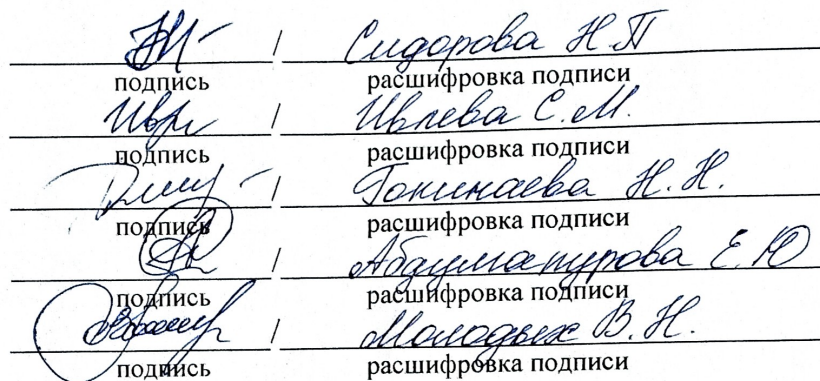 / Сидорова Н.П
подпись расшифровка подписи
/ Ивлева С.М.
подпись расшифровка подписи
/ Н.Н.
подпись расшифровка подписи
/ Е.Ю
подпись расшифровка подписи
/ Молодых В.Н.
подпись расшифровка подписи